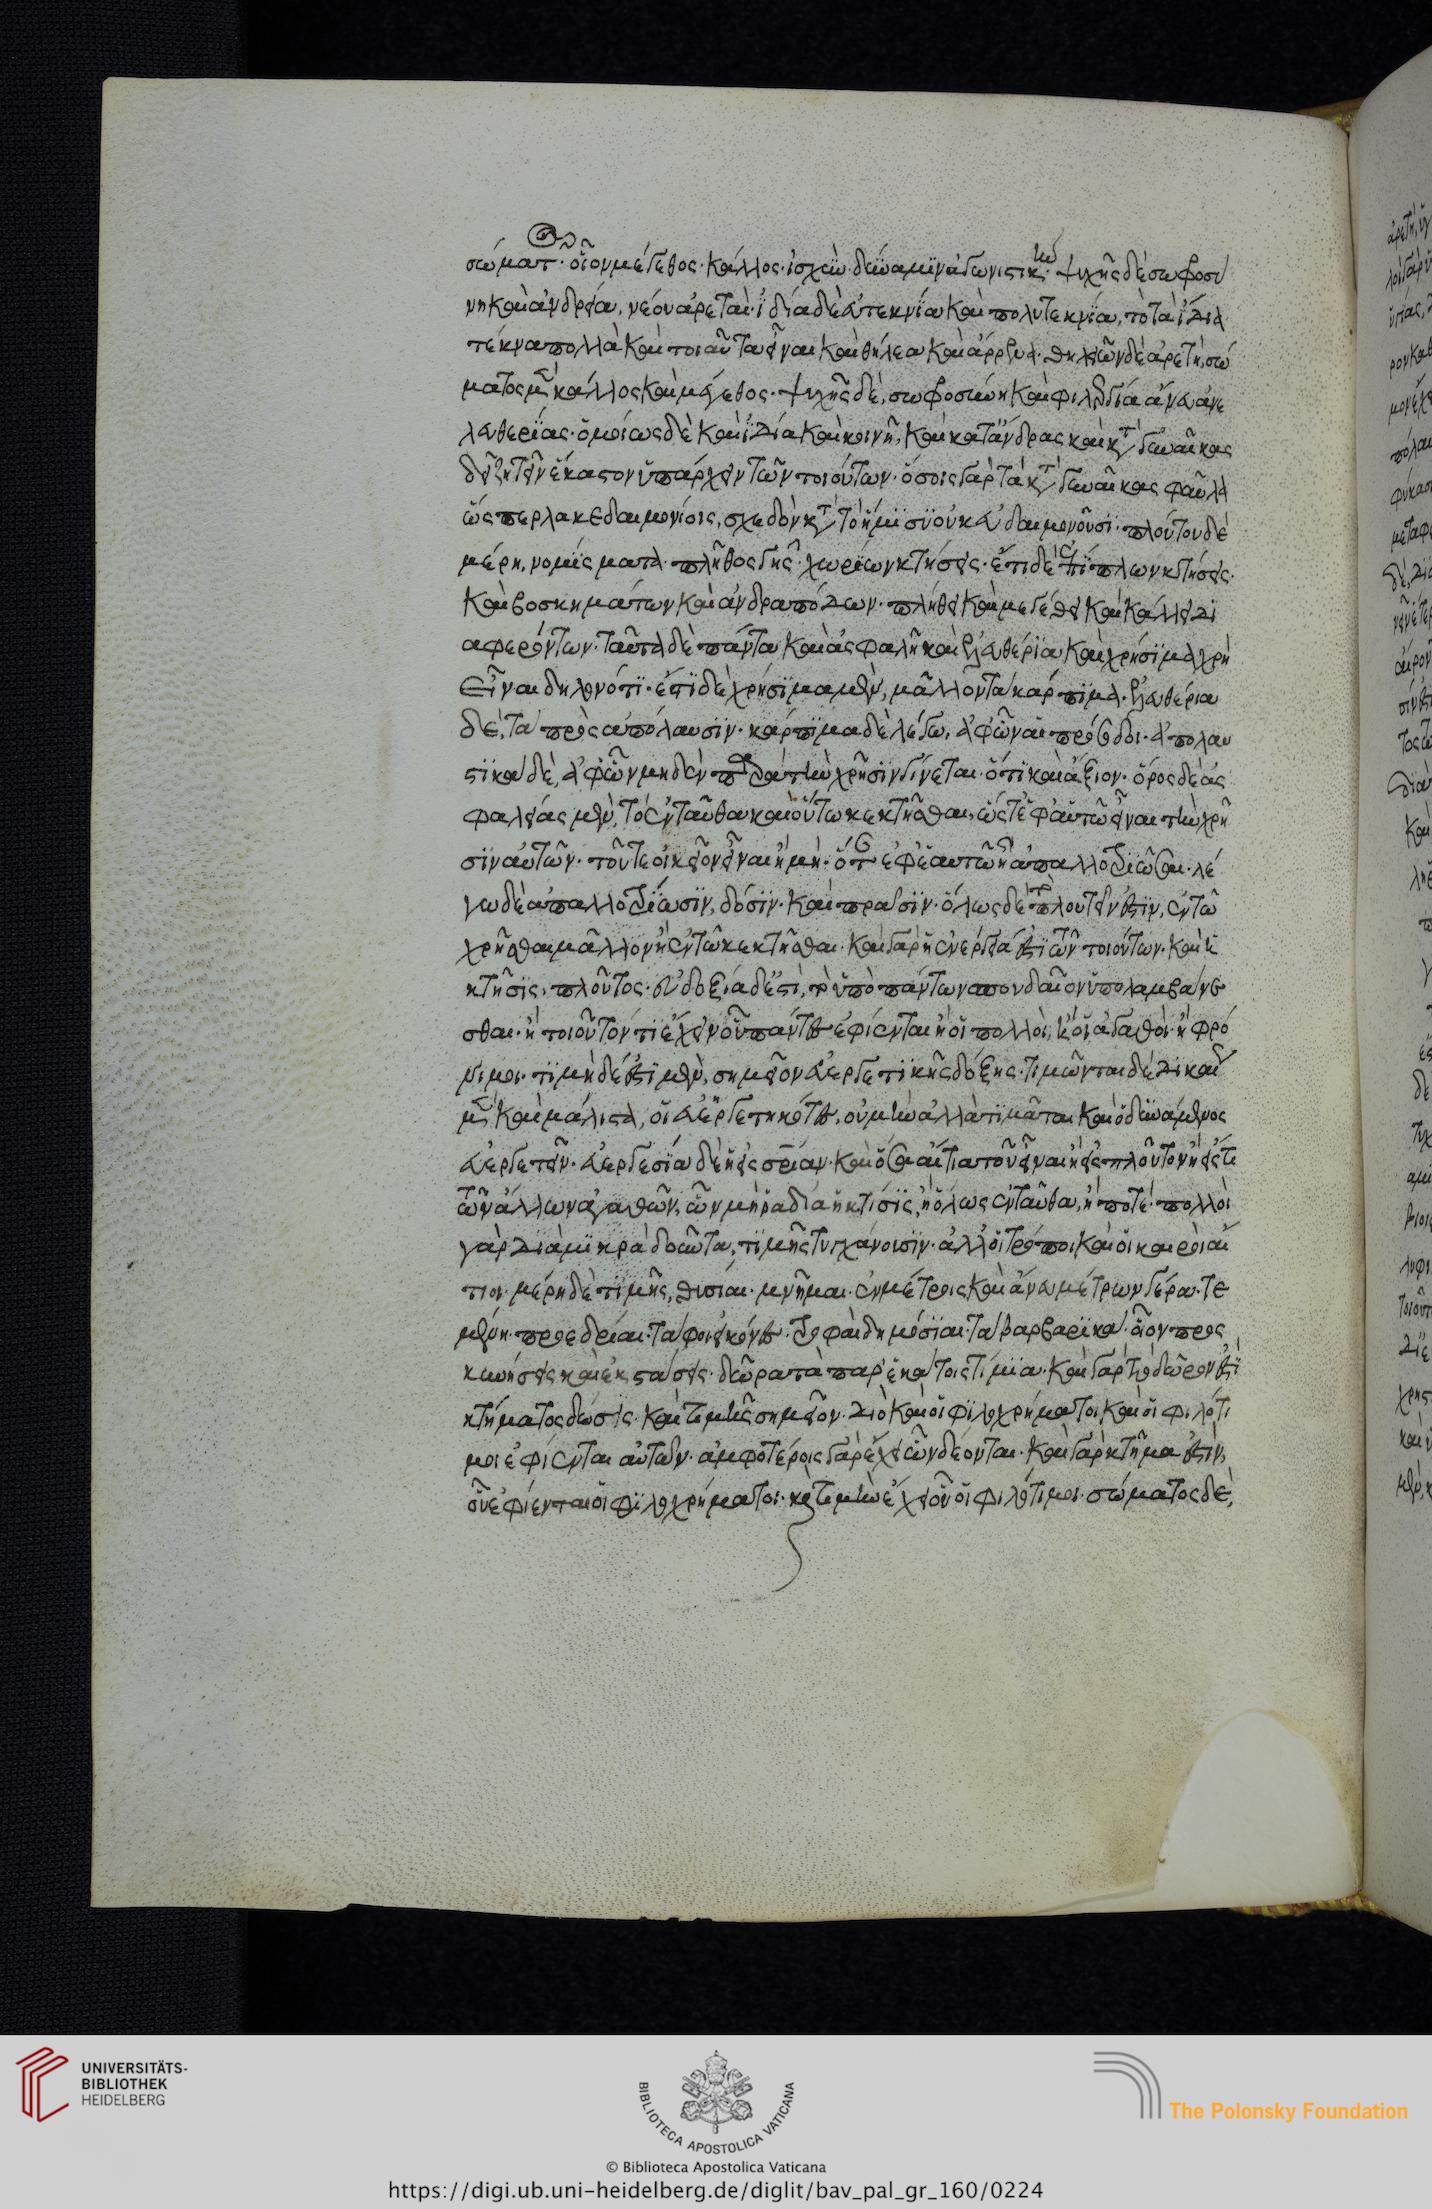 σώματος· οἷον μέγεθος· κάλλος· ἰσχὺν· δύναμιν ἀγωνιστικὴν· ψυχῆς δὲ σωφροσύ
νη καὶ ἀνδρεία, νέου ἀρεταὶ· ἰδία δὲ εὐτεκνία καὶ πολυτεκνία, τὸ τὰ ἴδια
τέκνα πολλὰ καὶ τοιαῦτα εἶναι καὶ θήλεα καὶ ἄρρενα· θηλειῶν δὲ ἀρετὴ, σώ
ματος μὲν κάλλος καὶ μέγεθος· ψυχῆς δὲ, σωφροσύνη καὶ φιλεργία ἄνευ ἀνε
λευθερίας· ὁμοίως δὲ καὶ ἰδία καὶ κοινῇ, καὶ κατ' ἄνδρας καὶ κατὰ γυναῖκας
δεῖ ζητεῖν ἕκαστον ὑπάρχειν τῶν τοιούτων· ὅσοις γὰρ τὰ κατὰ γυναῖκας φαῦλα
ὥσπερ λακεδαιμονίοις, σχεδὸν κατὰ τὸ ἥμισυ οὐκ εὐδαιμονοῦσι· πλούτου δὲ
μέρη, νομίσματα· πλῆθος γῆς· χωρίων κτήσεις· ἔτι δὲ ἐπίπλων κτήσεις·
καὶ βοσκημάτων καὶ ἀνδραπόδων· πλήθει καὶ μεγέθει καὶ κάλλει δι
αφερόντων· ταῦτα δὲ πάντα καὶ ἀσφαλῆ καὶ ἐλευθέρια καὶ χρήσιμα χρὴ
εἶναι δηλονότι· ἔτι δὲ χρήσιμα μὲν, μᾶλλον τὰ κάρπιμα· ἐλευθέρια
δὲ, τὰ πρὸς ἀπόλαυσιν· κάρπιμα δὲ λέγω, ἀφ' ὧν αἱ πρόσοδοι· ἀπολαυ
στικὰ δὲ, ἀφ' ὧν μηδὲν παρὰ τὴν χρῆσιν γίνεται· ὅτι καὶ ἄξιον· ὅρος δὲ ἀσ
φαλείας μὲν, τὸ ἐνταῦθα καὶ οὕτω κεκτῆσθαι, ὥστ' ἐφ' αὑτῶ εἶναι τὴν χρῆ
σιν αὐτῶν· τοῦ τε οἰκεῖον εἶναι ἢ μὴ· ὅταν ἐφ' ἑαυτῶ ἦ ἀπαλλοτριῶσαι· λέ
γω δὲ ἀπαλλοτρίωσιν, δόσιν· καὶ πρᾶσιν· ὅλως δὲ τὸ πλουτεῖν ἐστὶν, ἐν τῶ
χρῆσθαι μᾶλλον ἢ ἐν τῶ κεκτῆσθαι· καὶ γὰρ ἡ ἐνέργειά ἐστι τῶν τοιούτων· καὶ ἡ
κτῆσις, πλοῦτος· εὐδοξία δέ ἐστι, τὸ ὑπὸ πάντων σπουδαῖον ὑπολαμβάνε
σθαι· ἢ τοιοῦτόν τι ἔχειν οὗ πάντες ἐφίενται ἢ οἱ πολλοὶ, ἢ οἱ ἀγαθοὶ· ἢ φρό
νιμοι· τιμὴ δέ ἐστι μὲν, σημεῖον εὐεργετικῆς δόξης· τιμῶνται δὲ δικαίως
μὲν καὶ μάλιστα, οἱ εὐεργετηκότες, οὐ μὴν ἀλλὰ τιμᾶται καὶ ὁ δυνάμενος
εὐεργετεῖν· εὐεργεσία δὲ ἢ εἰς σωτηρίαν· καὶ ὅσα αἴτια τοῦ εἶναι ἢ εἰς πλοῦτον ἢ εἴς τι
τῶν ἄλλων ἀγαθῶν, ὧν μὴ ῥαδία ἡ κτίσις, ἢ ὅλως ἐνταῦθα, ἢ ποτέ· πολλοὶ
γὰρ διὰ μικρὰ δοκοῦντα, τιμῆς τυγχάνουσιν· ἀλλ' οἱ τρόποι καὶ οἱ καιροὶ αἴ
τιοι· μέρη δὲ τιμῆς, θυσίαι· μνῆμαι· ἐν μέτροις καὶ ἄνευ μέτρων γέρα· τε
μένη· προεδρίαι· τάφοι εἰκόνες· τροφαὶ δημόσιαι· τὰ βαρβαρικὰ· οἷον προς
κυνήσεις καὶ ἐκστάσεις· δῶρα τὰ παρ' ἑκάστοις τίμια· καὶ γὰρ τὸ δῶρόν ἐστὶ
κτήματος δόσις· καὶ τιμῆς σημεῖον· διὸ καὶ οἱ φιλοχρήματοι καὶ οἱ φιλότι
μοι ἐφίενται αὐτῶν· ἀμφοτέροις γὰρ ἔχει ὧν δέονται· καὶ γὰρ κτῆμα ἐστὶν,
οὗ ἐφίενται οἱ φιλοχρήματοι· καὶ τιμὴν ἔχει οὗ οἱ φιλότιμοι· σώματος δὲ,
UNIVERSITÄTS-
BIBLIOTHEK
HEIDELBERG
BIBLIOTECA APOSTOLICA VATICANA
© Biblioteca Apostolica Vaticana
The Polonsky Foundation
https://digi.ub.uni-heidelberg.de/diglit/bav_pal_gr_160/0224